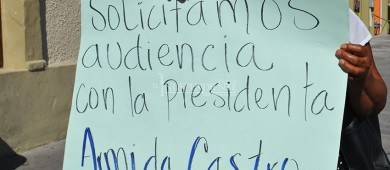 Solicitamos
audiencia
con la presidenta
Armida Castro